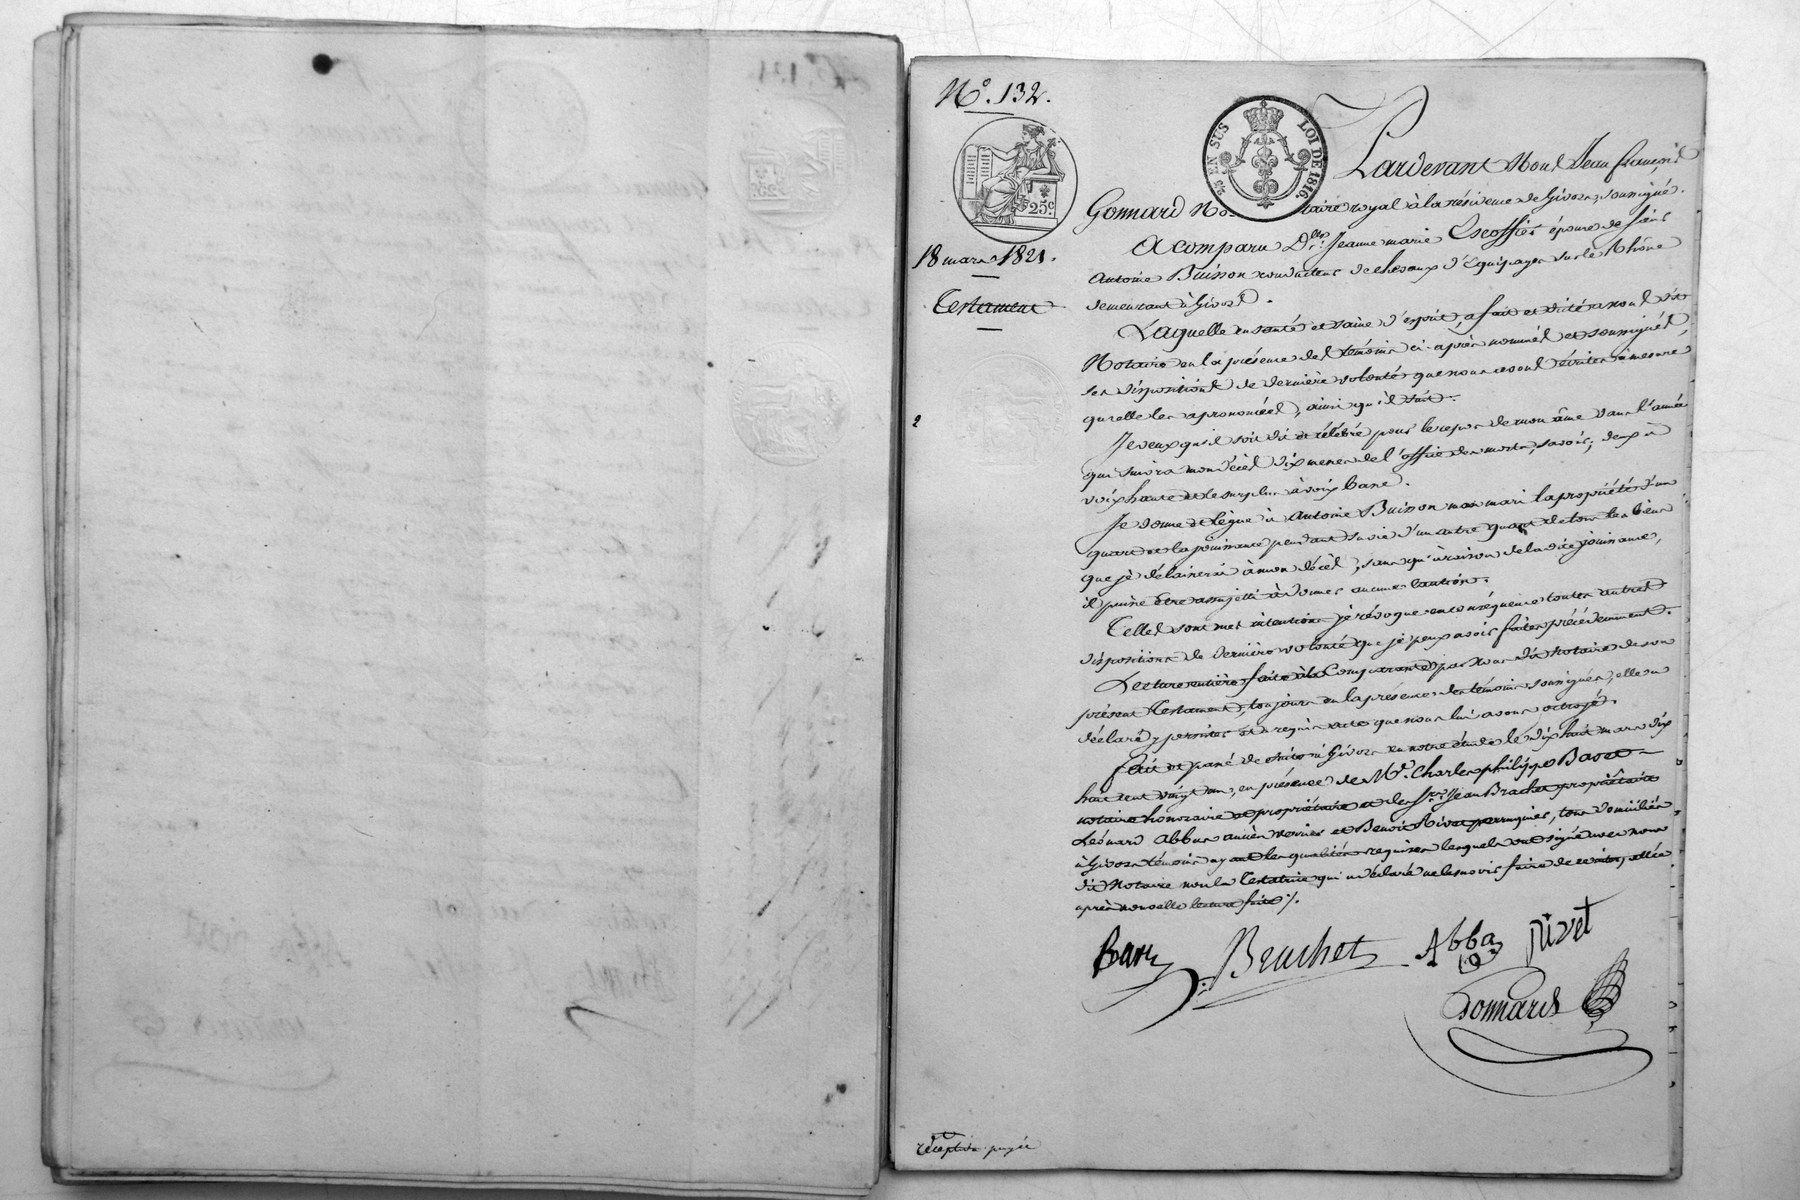 N.° 132.
25 EN SUS LOI DE 1816.
25.c
18 mars 1821.
Testament
Pardevant Nous Jean françois
Gonnard Notaire royal à la résidence de Givors, soussigné.
A comparu D.lle Jeanne marie Escoffier épouse de sieur
Antoine Buisson conducteur de chevaux d'Equipages sur le Rhône
demeurant à Givors.
Laquelle en santé et saine d'esprit, a fait et dicté a nous dit
Notaire en la présence des témoins ci-après nommés et soussignés,
ses dispositions de dernière volonté que nous avons écrites à mesure
qu'elle les a prononcées, ainsi qu'il suit.
Je veux qu'il soit dit et célébré pour le repos de mon âme dans l'année
qui suivra mon décès dix messes de l'office des morts, savoir; deux à
voix haute et le surplus à voix basse.
Je donne et lègue à Antoine Buisson mon mari la propriété d'un
quart et la jouissance pendant sa vie d'un autre quart de tous les biens
que je délaisserai à mon décès, sans qu'à raison de la dite jouissance,
il puisse être assujetti à donner aucune caution.
Telles sont mes intentions, je révoque en conséquence toutes autres
dispositions de dernière volonté que je peux avoir faites précédemment.
Lecture entière faite à la Comparante par nous dit notaire de son
présent Testament, toujours en la présence des témoins soussignés, elle a
déclaré y persister et a requis acte que nous lui avons octroyé.
fait et passé de suite à Givors en notre étude le dix huit mars dix
huit cent vingt un, en présence de M.r Charles philippe Basset
notaire honoraire et propriétaire et des S.rs Jean Brachet propriétaire
Léonard Abbas ancien verrier et Benoit Rivet perruquier, tous domiciliés
à Givors témoins ayant les qualités requises lesquels ont signé avec nous
dit Notaire non la Testatrice qui a déclaré ne le savoir faire de ce interpellée
après nouvelle lecture faite ./.
Brachet
Abbas
Rivet
Gonnard
2
réception payée